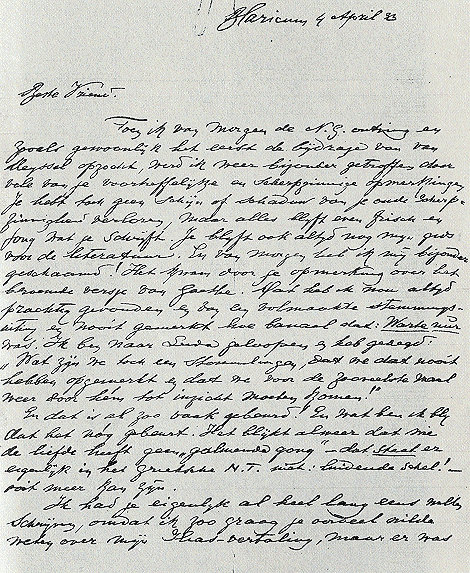 Blaricum 4 April 23
Beste Vriend.
Toen ik van morgen de N.G. ontving en
zooals gewoonlijk het eerst de bijdrage van van
Deyssel opzocht, werd ik weer bijzonder getroffen door
vele van je voortreffelijke en scherpzinnige opmerkingen.
Je hebt toch geen schijn of schaduw van je oude scherp-
zinnigheid verloren, maar alles blijft even frisch en
jong wat je schrijft. Je blijft ook altijd nog mijn gids
voor de literatuur. En van morgen heb ik mij bijzonder
geschaamd! Het kwam door je opmerking over het
beroemde versje van Goethe. Had dat ik nou altijd
prachtig gevonden en een volmaakte stemmings-
uiting en nooit gemerkt hoe banaal dat: Warte nur
was. Ik ben naar gelopen en heb gezegd.
„Wat zijn we toch een stommelingen, dat we dat nooit
hebben opgemerkt en dat we voor de zooveelste maal
weer door hem tot inzicht moeten komen!"
En dat is al zoo vaak gebeurd! En wat ben ik blij
dat het nóg gebeurt. Het blijkt alweer dat wie
de liefde heeft geen „galmende gong" – dat staat er
eigenlijk in het Grieksche N.T. niet: luidende schel! –
ooit meer kan zijn.
Ik had je eigenlijk al heel lang eens willen
schrijven, omdat ik zoo graag je oordeel wilde
weten over mijn Ilias-vertaling, maar er was